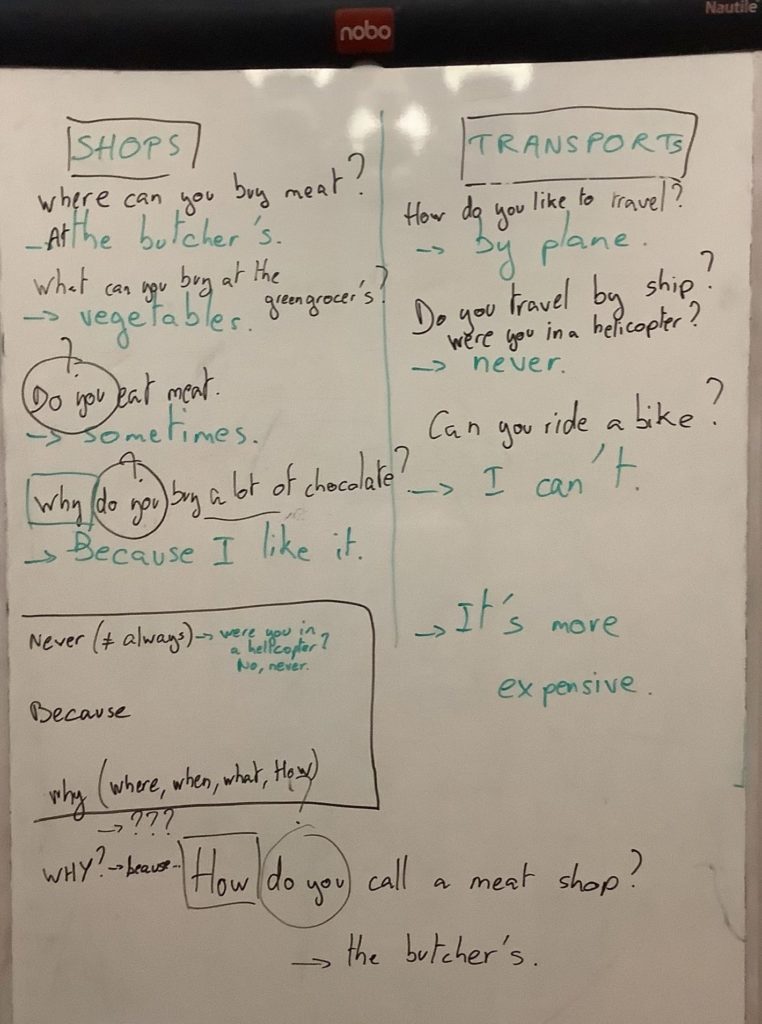 nobo
Nautile
SHOPS
where can you buy meat?
- At the butcher's.
What can you buy at the
greengrocer's?
→ vegetables.
?
Do you eat meat.
→ sometimes.
why do you buy a lot of chocolate?
→ Because I like it.
Never (≠ always) → were you in
a helicopter?
No, never.
Because
why (where, when, what, How)
→ ???
TRANSPORTs
How do you like to travel?
→ by plane.
Do you travel by ship?
were you in a helicopter?
→ never.
Can you ride a bike?
→ I can't.
→ It's more
expensive.
WHY? → beause.. How do you call a meat shop?
→ the butcher's.